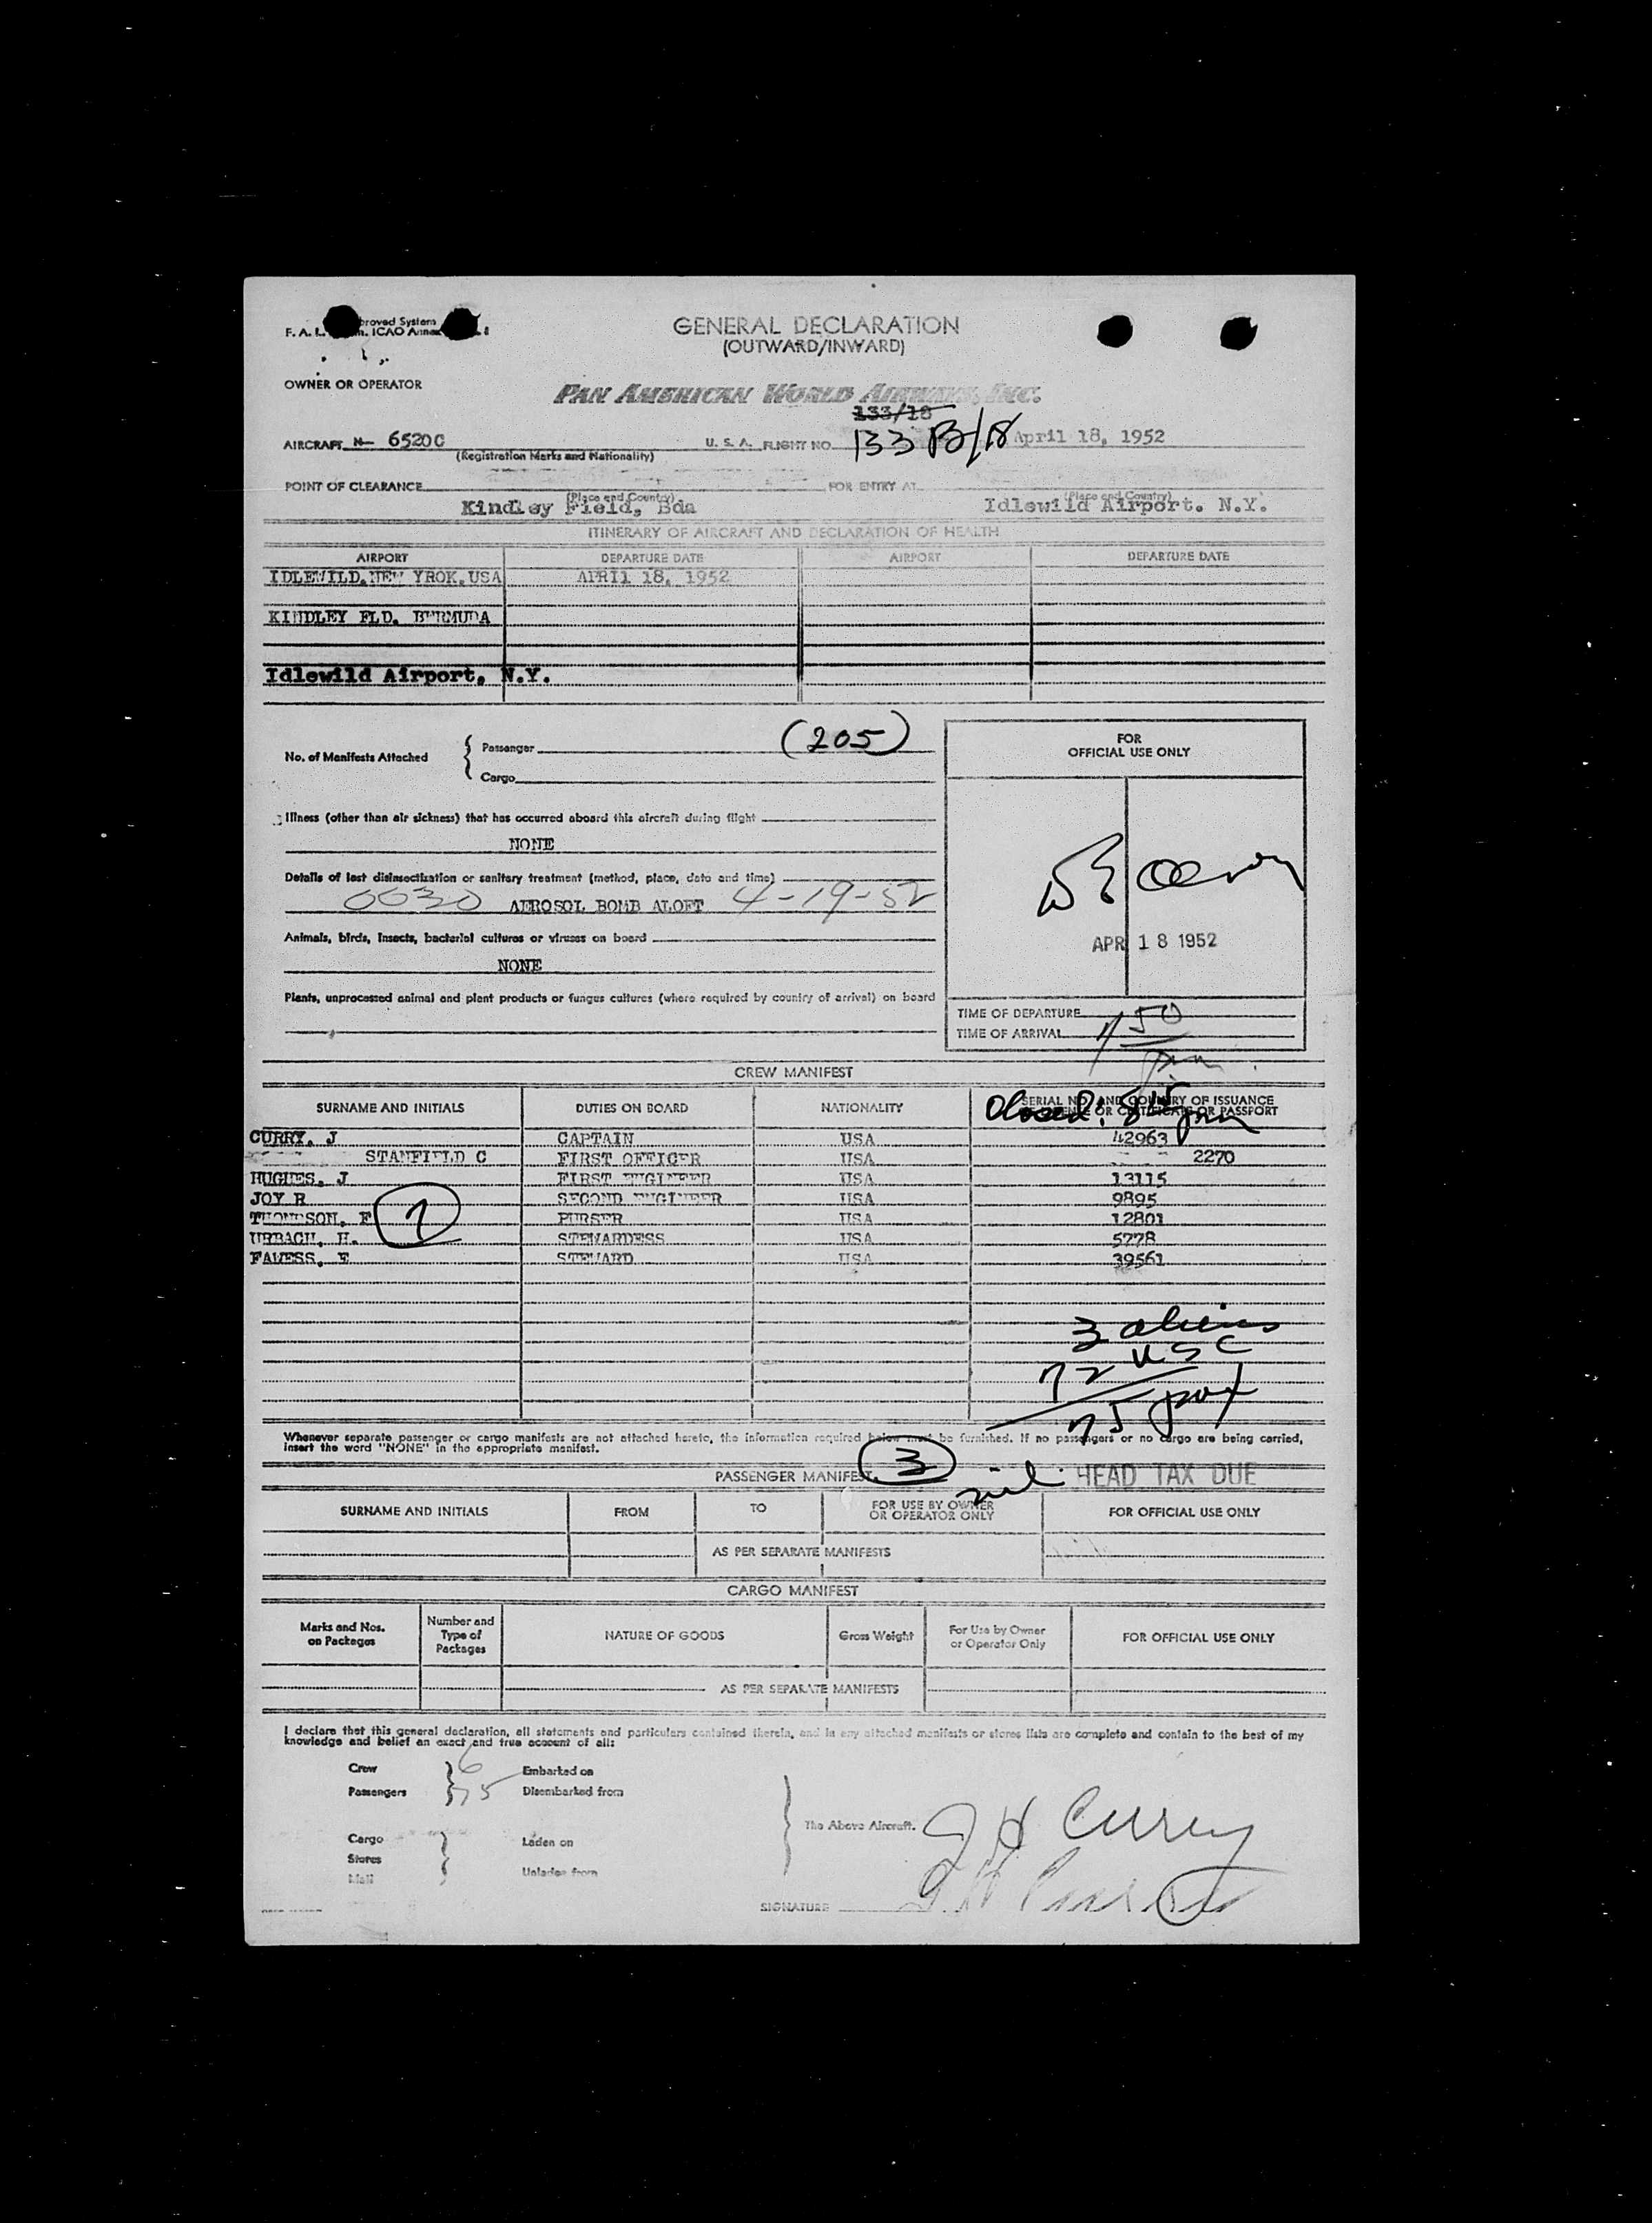 GENERAL DECLARATION
(OUTWARD/INWARD)
OWNER OR OPERATOR
PAN AMERICAN WORLD AIRWAYS, INC.
133/18
AIRCRAFT N- 6520C U. S. A. FLIGHT NO. 133 B/18 April 18, 1952
(Registration Marks and Nationality)
POINT OF CLEARANCE FOR ENTRY AT
(Place and Country) (Place and Country)
Kindley Field, Bda Idlewild Airport. N.Y.
ITINERARY OF AIRCRAFT AND DECLARATION OF HEALTH
AIRPORT DEPARTURE DATE AIRPORT DEPARTURE DATE
IDLEWILD.NEW YROK.USA APRIl 18, 1952
KINDLEY FLD. BERMUDA
Idlewild Airport, N.Y.
No. of Manifests Attached { Passenger (205)
Cargo
FOR
OFFICIAL USE ONLY
Illness (other than air sickness) that has occurred aboard this aircraft during flight
NONE
Details of last disinsectization or sanitary treatment (method, place, date and time)
0030 AEROSOL BOMB ALOFT 4-19-52
Animals, birds, insects, bacterial cultures or viruses on board
NONE
APR 18 1952
Plants, unprocessed animal and plant products or fungus cultures (where required by country of arrival) on board
TIME OF DEPARTURE
TIME OF ARRIVAL 750
pm
CREW MANIFEST
SURNAME AND INITIALS DUTIES ON BOARD NATIONALITY SERIAL NO. AND COUNTRY OF ISSUANCE
LICENSE OR CERTIFICATE OR PASSPORT
Closed: 815 pm
CURRY, J CAPTAIN USA 42963
STANFIELD C FIRST OFFICER USA 2270
HUGHES, J FIRST ENGINEER USA 13115
JOY R SECOND ENGINEER USA 9895
THOMPSON, F PURSER USA 12801
7
URBACH, H. STEWARDESS USA 5778
FAWESS, E STEWARD USA 39561
3 aliens
72 USC
75 pax
Whenever separate passenger or cargo manifests are not attached hereto, the information required below must be furnished. If no passengers or no cargo are being carried,
insert the word "NONE" in the appropriate manifest.
PASSENGER MANIFEST 3 nil HEAD TAX DUE
SURNAME AND INITIALS FROM TO FOR USE BY OWNER
OR OPERATOR ONLY FOR OFFICIAL USE ONLY
AS PER SEPARATE MANIFESTS
CARGO MANIFEST
Marks and Nos.
on Packages Number and
Type of
Packages NATURE OF GOODS Gross Weight For Use by Owner
or Operator Only FOR OFFICIAL USE ONLY
AS PER SEPARATE MANIFESTS
I declare that this general declaration, all statements and particulars contained therein, and in any attached manifests or stores lists are complete and contain to the best of my
knowledge and belief an exact and true account of all:
Crew 6 Embarked on
Passengers 75 Disembarked from
The Above Aircraft.
J H Curry
Cargo Laden on
Stores
Mail Unladen from
SIGNATURE